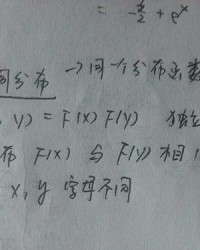 = -x/2 + e^x
同分布 → 同一个分布函数
, y) = F(x) F(y) 独立
布 F(x) 与 F(y) 相
x, y 字母不同